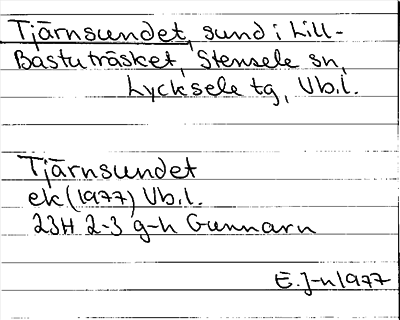 Tjärnsundet, sund i Lill-
Bastuträsket, Stensele sn,
Lycksele tg, Vb.l.
Tjärnsundet
ek (1977) Vb.l.
23H 2-3 g-h Gunnarn
E.J-n 1977